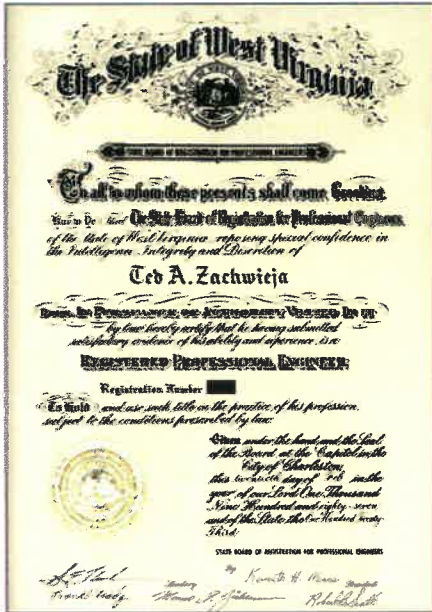 The State of West Virginia
STATE BOARD OF REGISTRATION FOR PROFESSIONAL ENGINEERS
To all to whom these presents shall come Greeting
Know Ye that The State Board of Registration for Professional Engineers
of the State of West Virginia reposing special confidence in
the Intelligence, Integrity and Discretion of
Ted A. Zachwieja
Does, In Pursuance of Authority Vested In It
by law hereby certify that he having submitted
satisfactory evidence of his ability and experience is a
Registered Professional Engineer
Registration Number
To Hold and use such title in the practice of his profession,
subject to the conditions prescribed by law.
Given under the hand and the Seal
of the Board at the Capitol in the
City of Charleston,
this twentieth day of Feb in the
year of our Lord One Thousand
Nine Hundred and eighty-seven
and of the State the One Hundred Twenty
Third
STATE BOARD OF REGISTRATION FOR PROFESSIONAL ENGINEERS
By